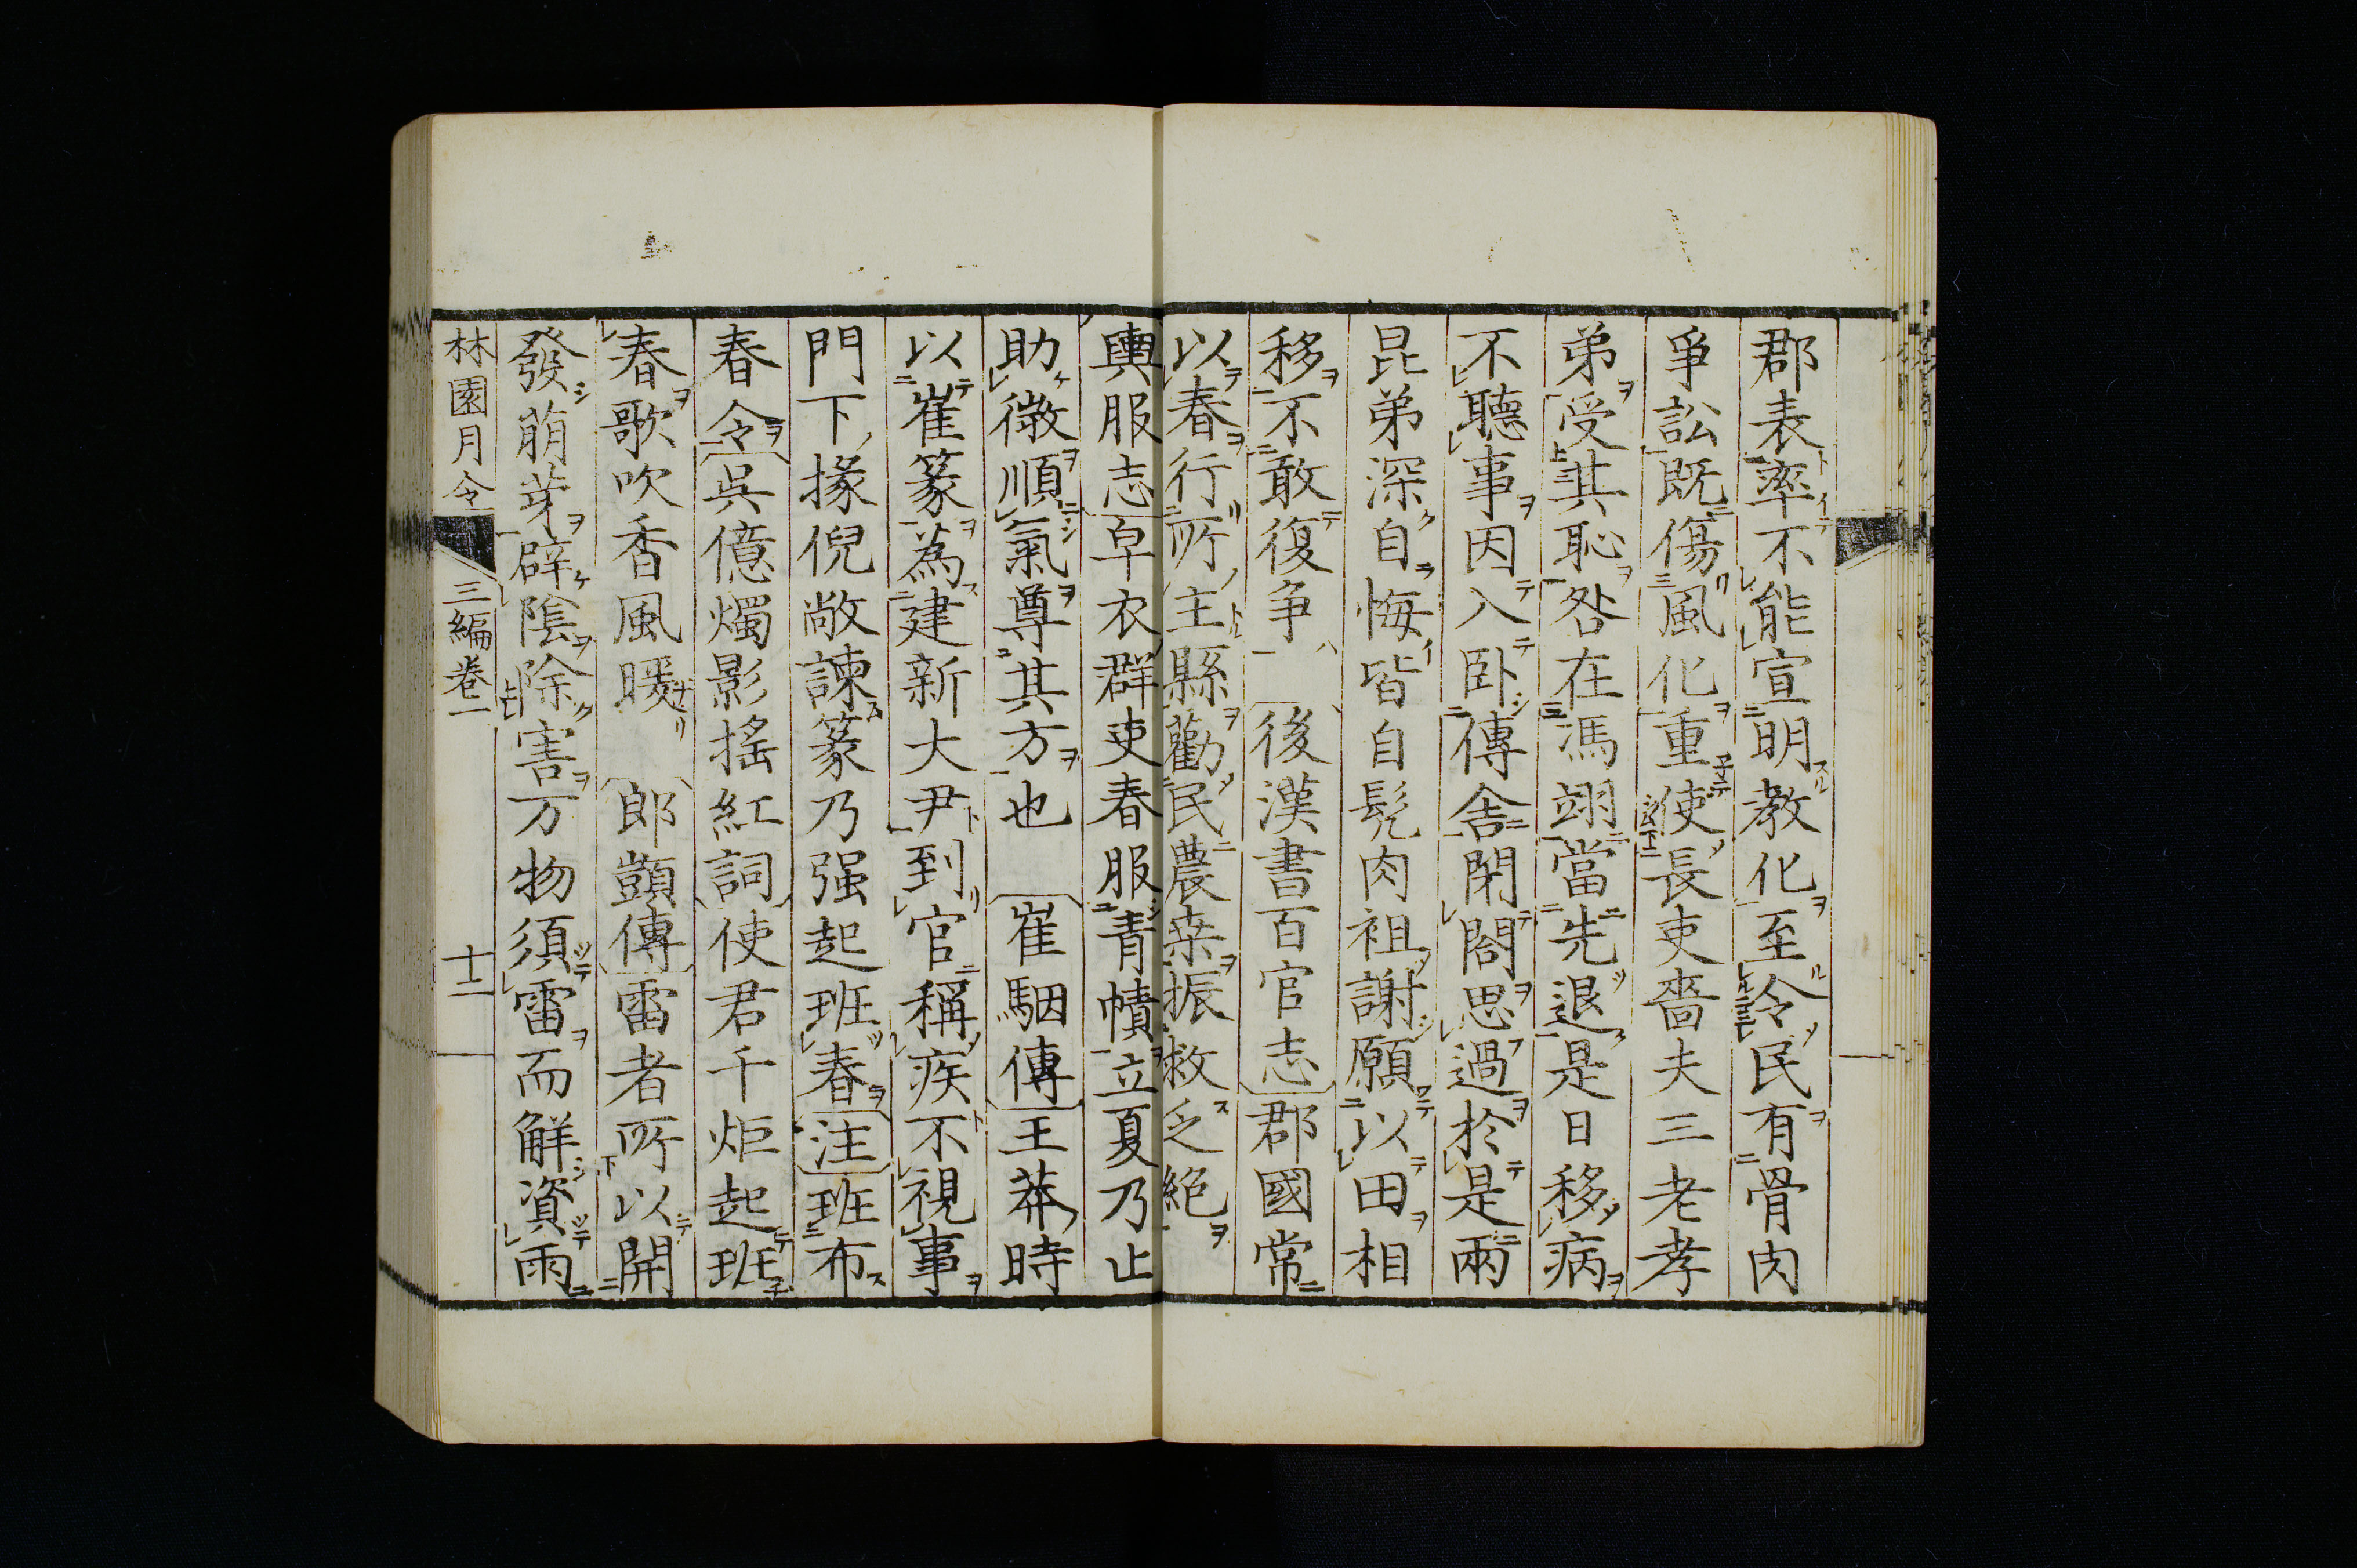 郡表率不能宣明教化至令民有骨肉
爭訟既傷風化重使長吏嗇夫三老孝
弟受其恥咎在馮翊當先退是日移病
不聽事因入臥傳舍閉閤思過於是兩
昆弟深自悔皆自髡肉袒謝願以田相
移不敢復爭　後漢書百官志郡國常
以春行所主縣勸民農桒振救乏絕
輿服志皁衣群吏春服青幘立夏乃止
助微順氣尊其方也　崔駰傳王莽時
以崔篆為建新大尹到官稱疾不視事
門下掾倪敞諫篆乃强起班春注班布
春令吳億燭影搖紅詞使君千炬起班
春歌吹香風暖　郎顗傳雷者所以開
發萠芽辟陰除害万物須雷而解資雨
林園月令　三編卷一　十二